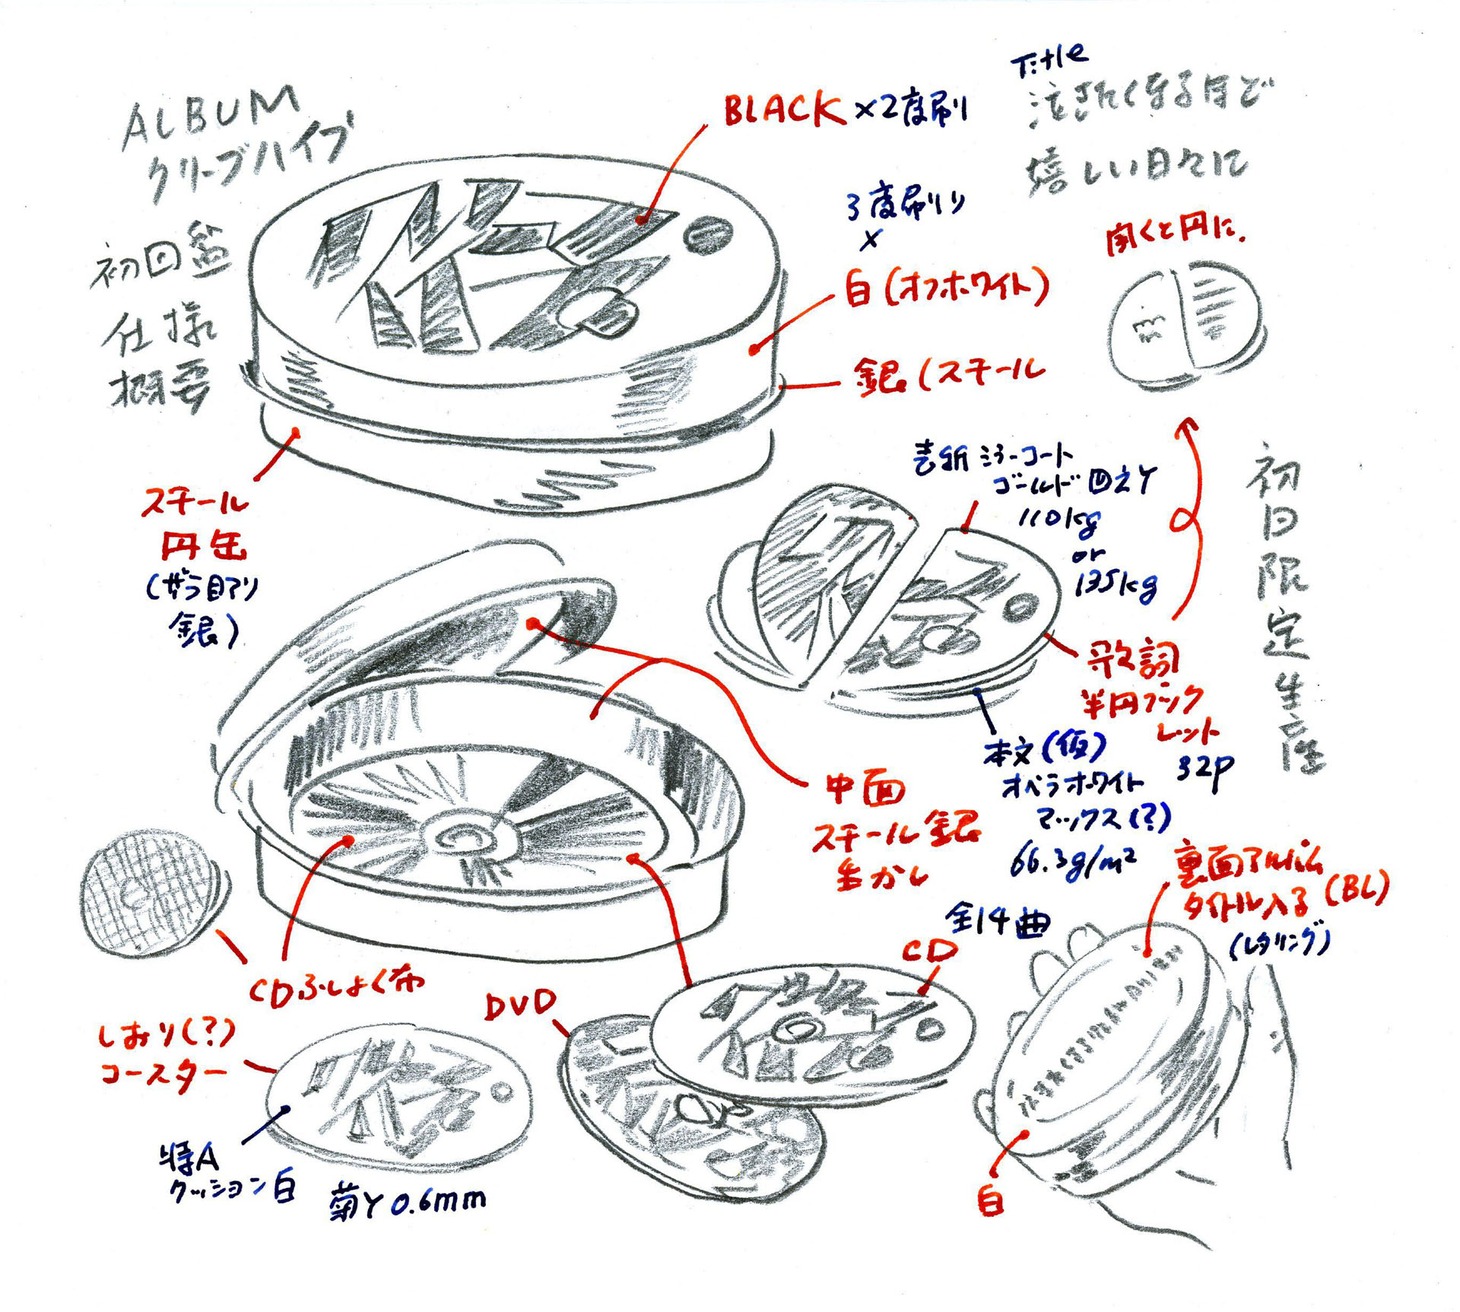 ALBUM
クリープハイプ
初回盤
仕様
概要
BLACK ×2度刷り
3度刷り
×
白(オフホワイト)
銀(スチール
Title
泣きたくなるほど
嬉しい日々に
開くと円に.
スチール
円缶
(ザラ目アリ
銀)
表紙 ミラーコート
ゴールド 四六Y
110kg
or
135kg
初
回
限
定
生
産
歌詞
半円ブック
レット
32P
本文(仮)
オペラホワイト
マックス(?)
66.3g/m²
中面
スチール銀
生かし
CDふしょく布
全14曲
CD
DVD
裏面アルバム
タイトル入る(BL)
(レタリング)
泣きたくなるほど嬉しい日々に
白
しおり(?)
コースター
特A
クッション白
菊Y 0.6mm